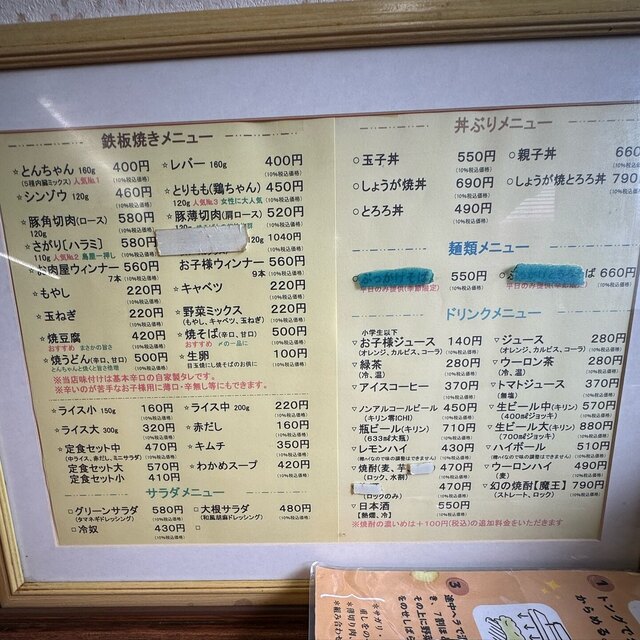 鉄板焼きメニュー
☆とんちゃん 160g 400円
(5種内臓ミックス) 人気№1 (10%税込価格)
☆レバー 160g 400円
(10%税込価格)
☆シンゾウ 120g 460円
(10%税込価格)
☆とりもも(鶏ちゃん) 450円
120g 人気№3 女性に大人気 (10%税込価格)
☆豚角切肉(ロース) 580円
120g (10%税込価格)
☆豚薄切肉(肩ロース) 520円
(10%税込価格)
☆さがり[ハラミ] 580円
110g 人気№2 鳥屋一押し (10%税込価格)
120g 1040円
(10%税込価格)
お肉屋ウィンナー 560円
7本 (10%税込価格)
お子様ウィンナー 560円
9本 (10%税込価格)
☆もやし 220円
(10%税込価格)
☆キャベツ 220円
(10%税込価格)
☆玉ねぎ 220円
(10%税込価格)
☆野菜ミックス 220円
(もやし、キャベツ、玉ねぎ) (10%税込価格)
☆焼豆腐 420円
おすすめ まさかの旨さ (10%税込価格)
☆焼そば(辛口、甘口) 500円
おすすめ 〆の一品に (10%税込価格)
☆焼うどん(辛口、甘口) 500円
とんちゃんと焼くと旨さ倍増 (10%税込価格)
☆生卵 100円
目玉焼に し焼そばのお供に (10%税込価格)
※当店味付けは基本辛口の自家製タレです。
※辛いのが苦手なお子様用に薄口・辛無し等にもできます。
☆ライス小 150g 160円
(10%税込価格)
☆ライス中 200g 220円
(10%税込価格)
☆ライス大 300g 320円
(10%税込価格)
☆赤だし 160円
(10%税込価格)
☆定食セット中 470円
(中ライス、赤だし、ミニサラダ) (10%税込価格)
☆キムチ 350円
(10%税込価格)
定食セット大 570円
(10%税込価格)
定食セット小 410円
(10%税込価格)
☆わかめスープ 420円
(10%税込価格)
サラダメニュー
□グリーンサラダ 580円
(タマネギドレッシング) (10%税込価格)
□大根サラダ 480円
(和風胡麻ドレッシング) (10%税込価格)
□冷奴 430円
(10%税込価格)
□
丼ぶりメニュー
○玉子丼 550円
(10%税込価格)
○親子丼 660
(10%税込価
○しょうが焼丼 690円
(10%税込価格)
○しょうが焼とろろ丼 790
(10%税込価
○とろろ丼 490円
(10%税込価格)
麺類メニュー
ぶっかけそば 550円
平日のみ提供(季節限定) (10%税込価格)
○ぶっかけとろろそば 660円
平日のみ提供(季節限定) (10%税込価格)
ドリンクメニュー
小学生以下
▽お子様ジュース 140円
(オレンジ、カルピス、コーラ) (10%税込価格)
▽ジュース 280円
(オレンジ、カルピス、コーラ) (10%税込価格)
▽緑茶 280円
(冷、温) (10%税込価格)
▽ウーロン茶 280円
(冷、温) (10%税込価格)
▽アイスコーヒー 370円
(10%税込価格)
▽トマトジュース 370円
(無塩) (10%税込価格)
▽ノンアルコールビール 450円
(キリン零ICHI) (10%税込価格)
▽生ビール中(キリン) 570円
(400㎖ジョッキ) (10%税込価格)
▽瓶ビール(キリン) 710円
(633㎖大瓶) (10%税込価格)
▽生ビール大(キリン) 880円
(700㎖ジョッキ) (10%税込価格)
▽レモンハイ 430円
(樽ハイなので味の調整はできません) (10%税込価格)
▽ハイボール 510円
(樽ハイなので味の調整はできません) (10%税込価格)
▽焼酎(麦、芋 470円
(ロック、水割) (10%税込価格)
▽ウーロンハイ 490円
(麦) (10%税込価格)
470円
(ロックのみ) (10%税込価格)
▽幻の焼酎【魔王】 790円
(ストレート、ロック) (10%税込価格)
▽日本酒 550円
【熱燗、冷】 (10%税込価格)
※焼酎の濃いめは+100円(税込)の追加料金をいただきます
③
途中ヘラで
き、7割ほ
その上に野菜
をのせしばら
①
トングで
からめる